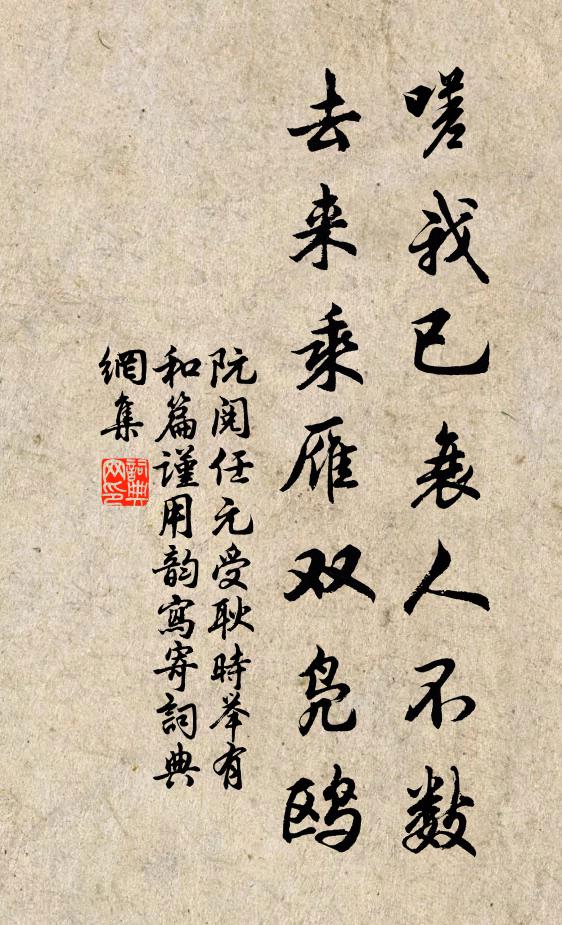 嗟我已衰人不数
去来乘雁双凫鸥
阮阅任元受耿時举有
和篇谨用韵寫寄詞典
網集
詞典
网印